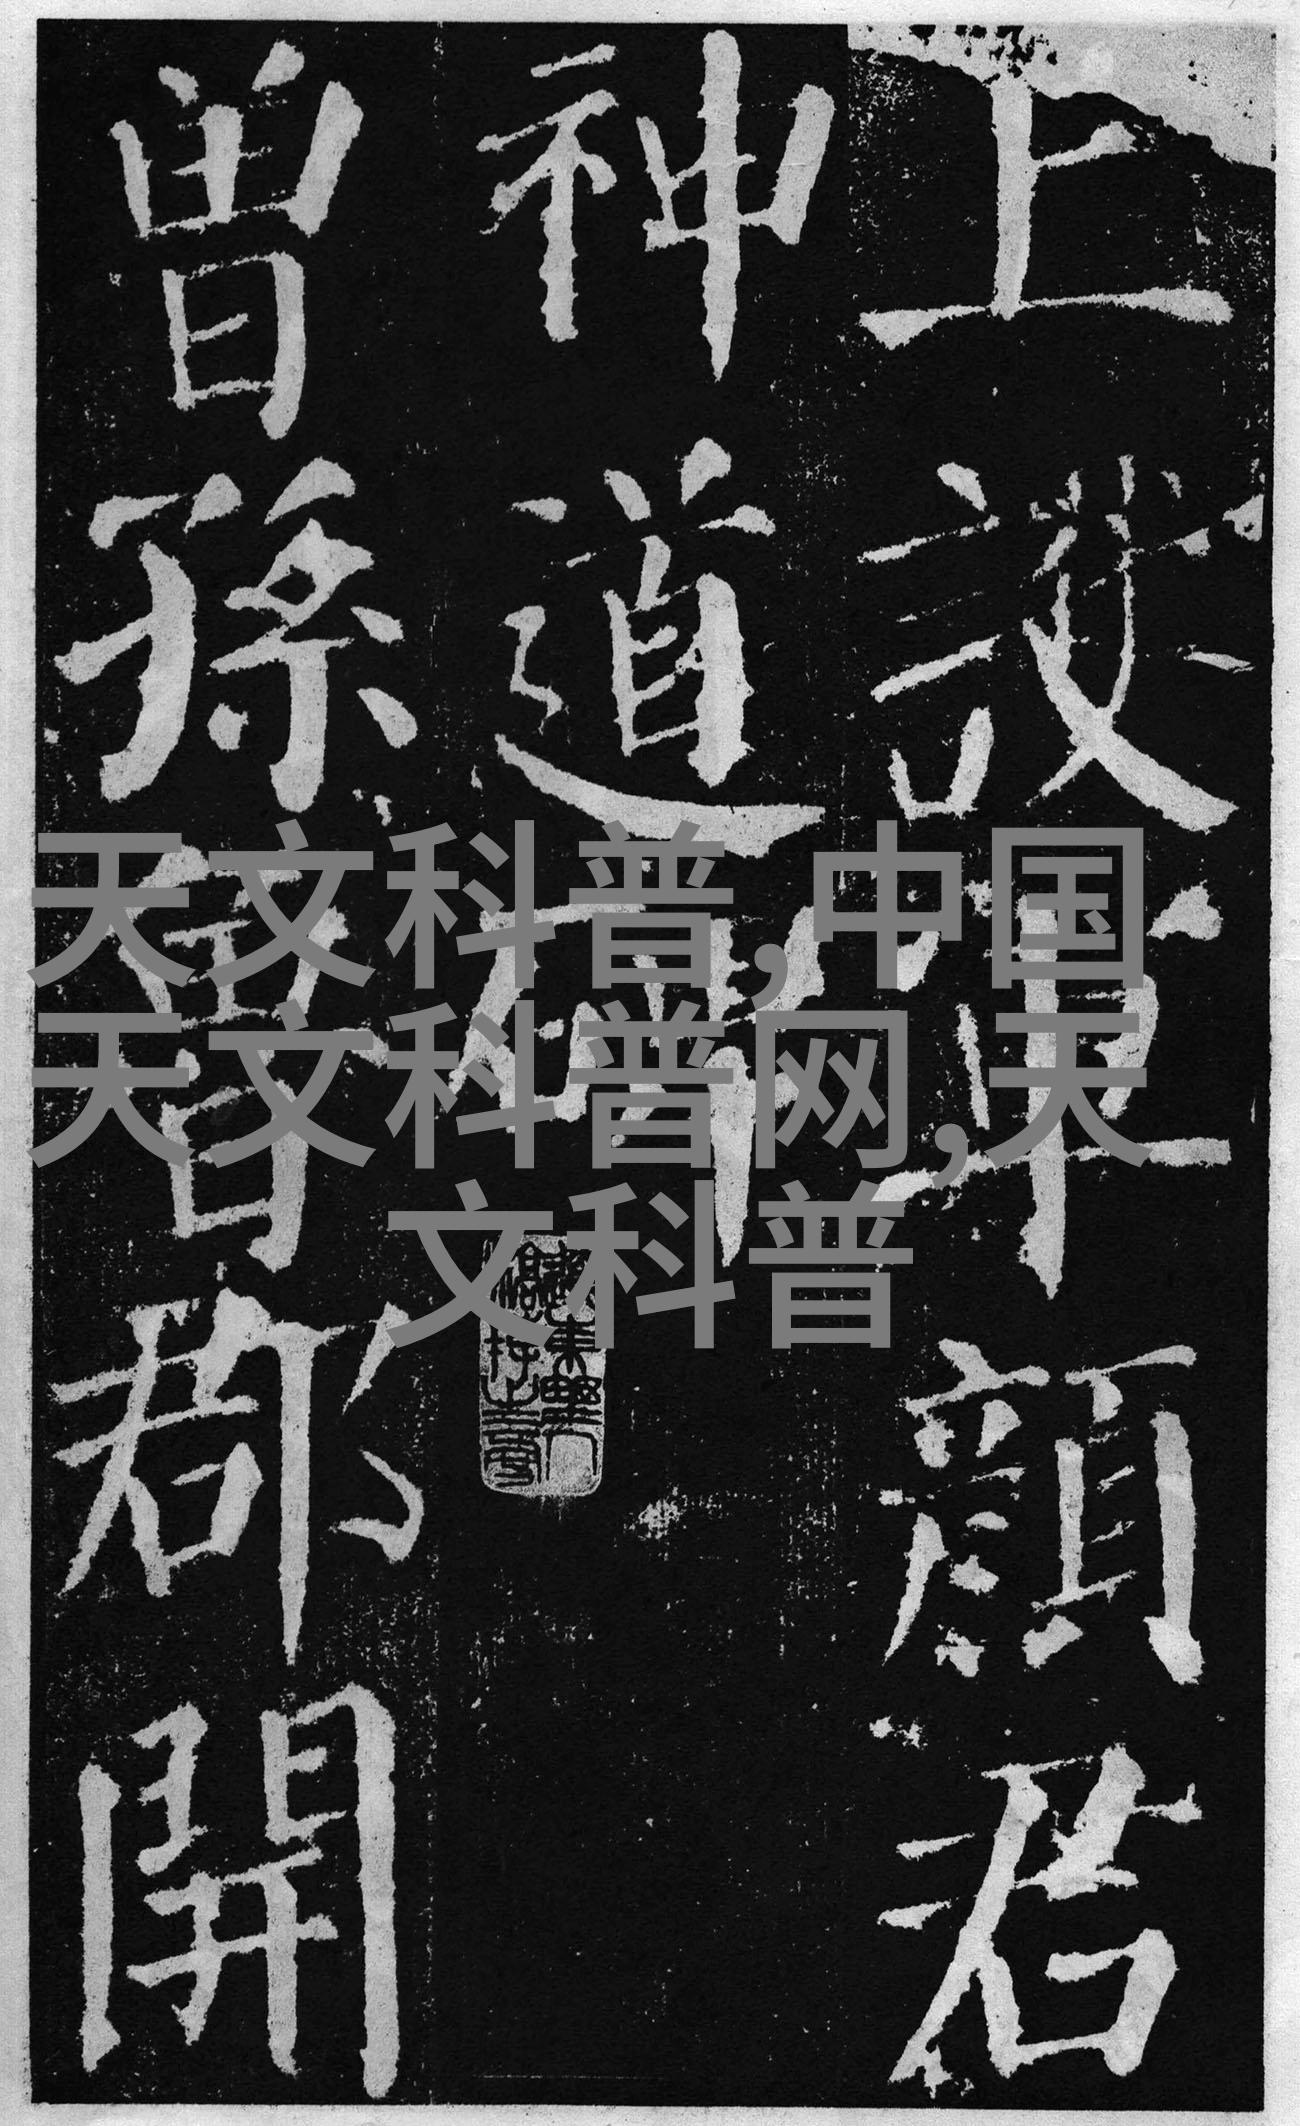 上設軍顏君
神道碑
曾孫魯郡開
天文科普,中国
天文科普网,天
文科普